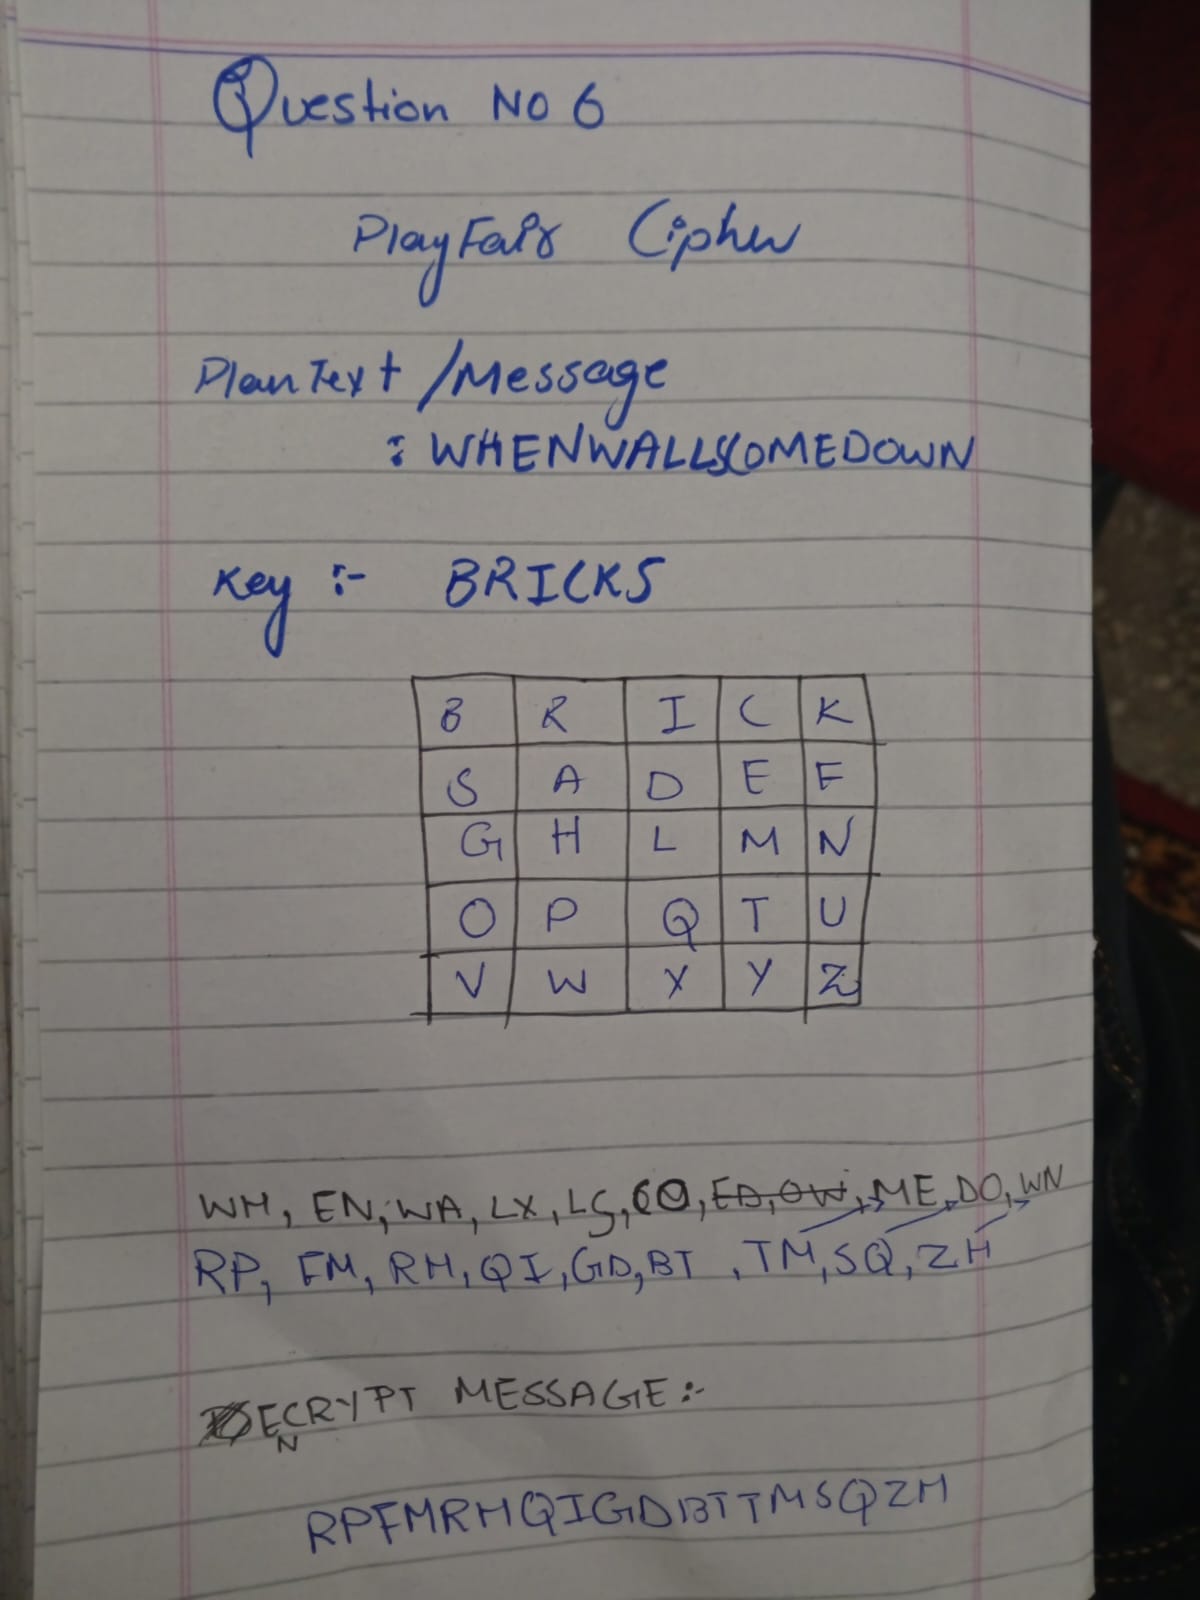 Question No 6
PlayFair Cipher
Plan Text /Message
: WHENWALLSCOMEDOWN
Key :- BRICKS
B R I C K
S A D E F
G H L M N
O P Q T U
V W X Y Z
WH, EN, WA, LX, LS, CO, ED, OW, ME, DO, WN
RP, FM, RH, QI, GD, BT, TM, SQ, ZH
ENCRYPT MESSAGE:-
RPFMRHQIGDBTTMSQZH